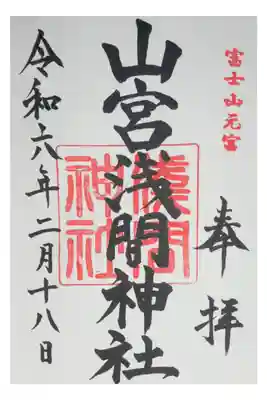 富士山元宮
奉拝
山宮浅間神社
浅間神社
令和六年二月十八日